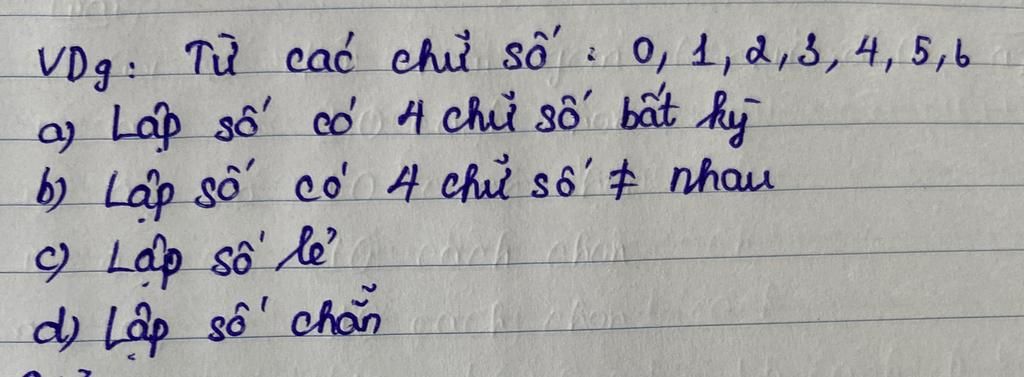 VD9: Từ các chữ số: 0, 1, 2, 3, 4, 5, 6
a) Lập số có 4 chữ số bất kỳ
b) Lập số có 4 chữ số ≠ nhau
c) Lập số lẻ
d) Lập số chẵn